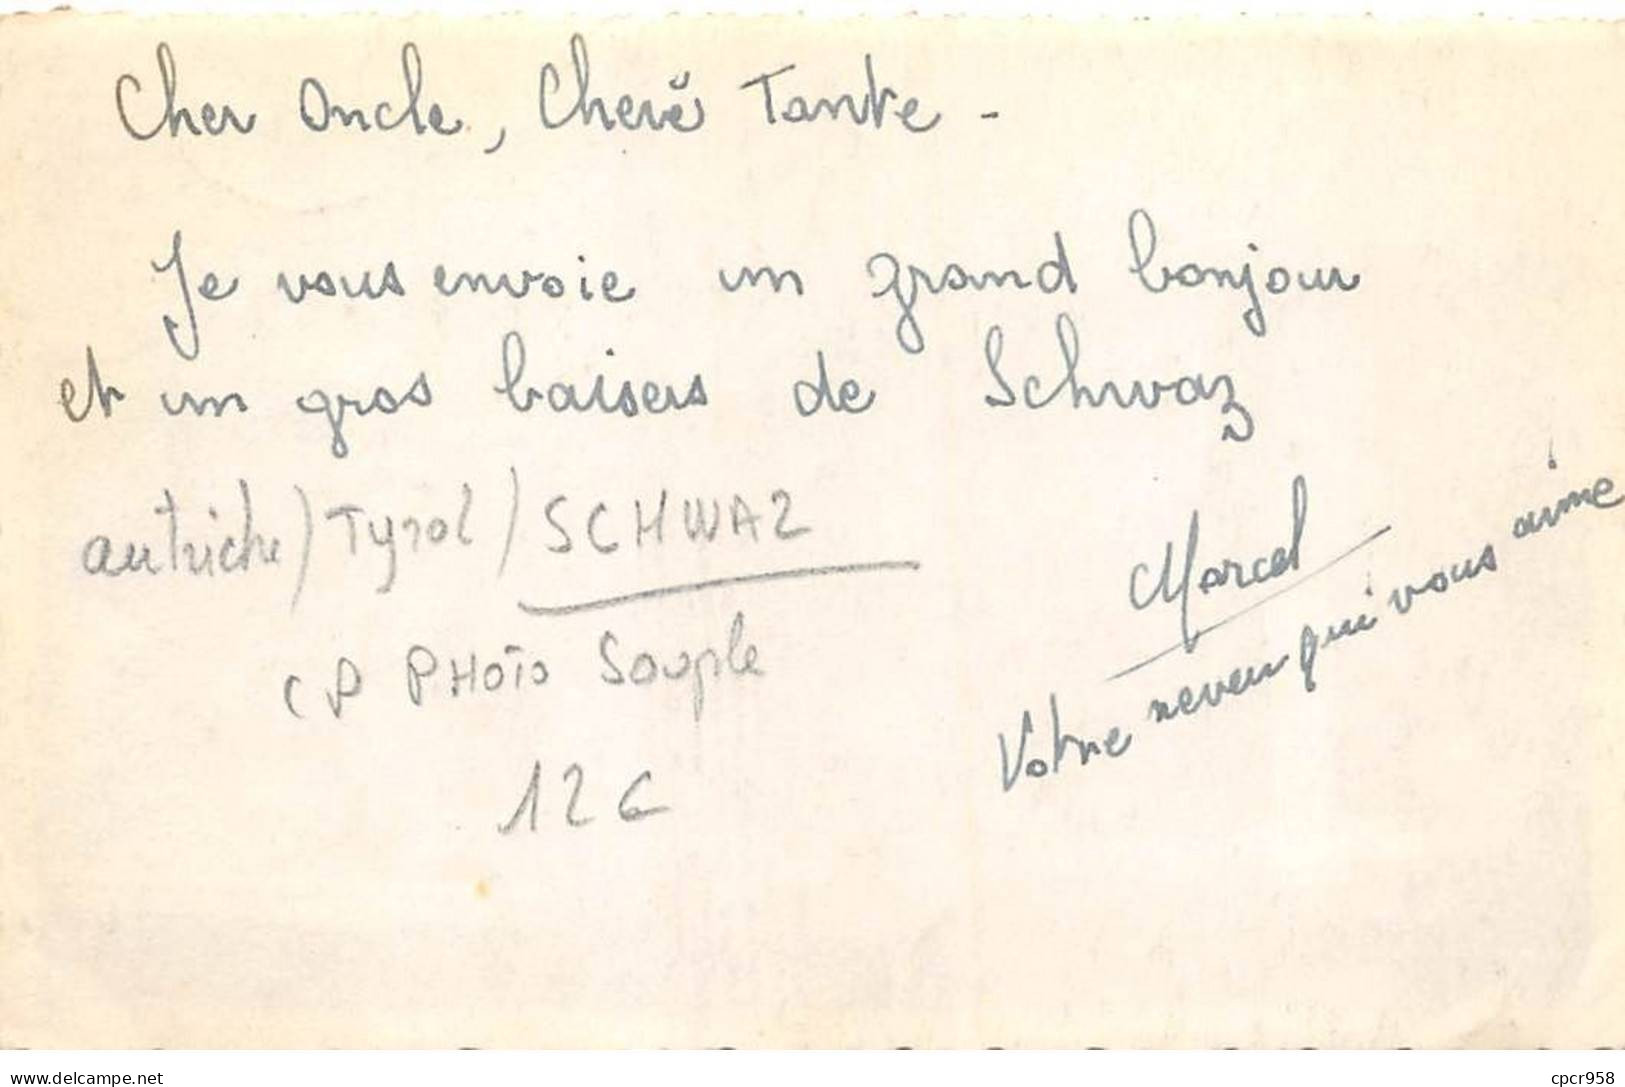 Cher Oncle, Cherë Tante -
Je vous envoie un grand bonjour
et un gros baisers de Schwaz
autriche / Tyrol / SCHWAZ
CP PHOTO Souple
12 €
Marcel
Votre neveu qui vous aime
delcampe.net
cpcr958